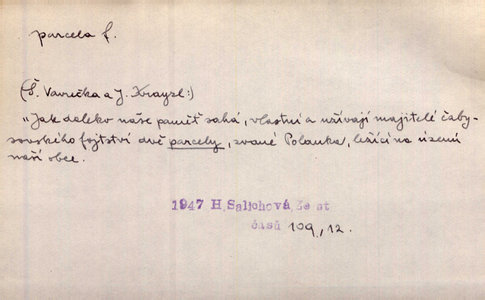 parcela f.
(Š. Vavrečka a J. Krayzl:)
„Jak daleko naše paměť sahá, vlastní a užívají majitelé čaby-
šovského fojtství dvě parcely, zvané Polanka, ležící na území
naší obce.
1947 H. Salichová, Ze st
časů 109, 12.